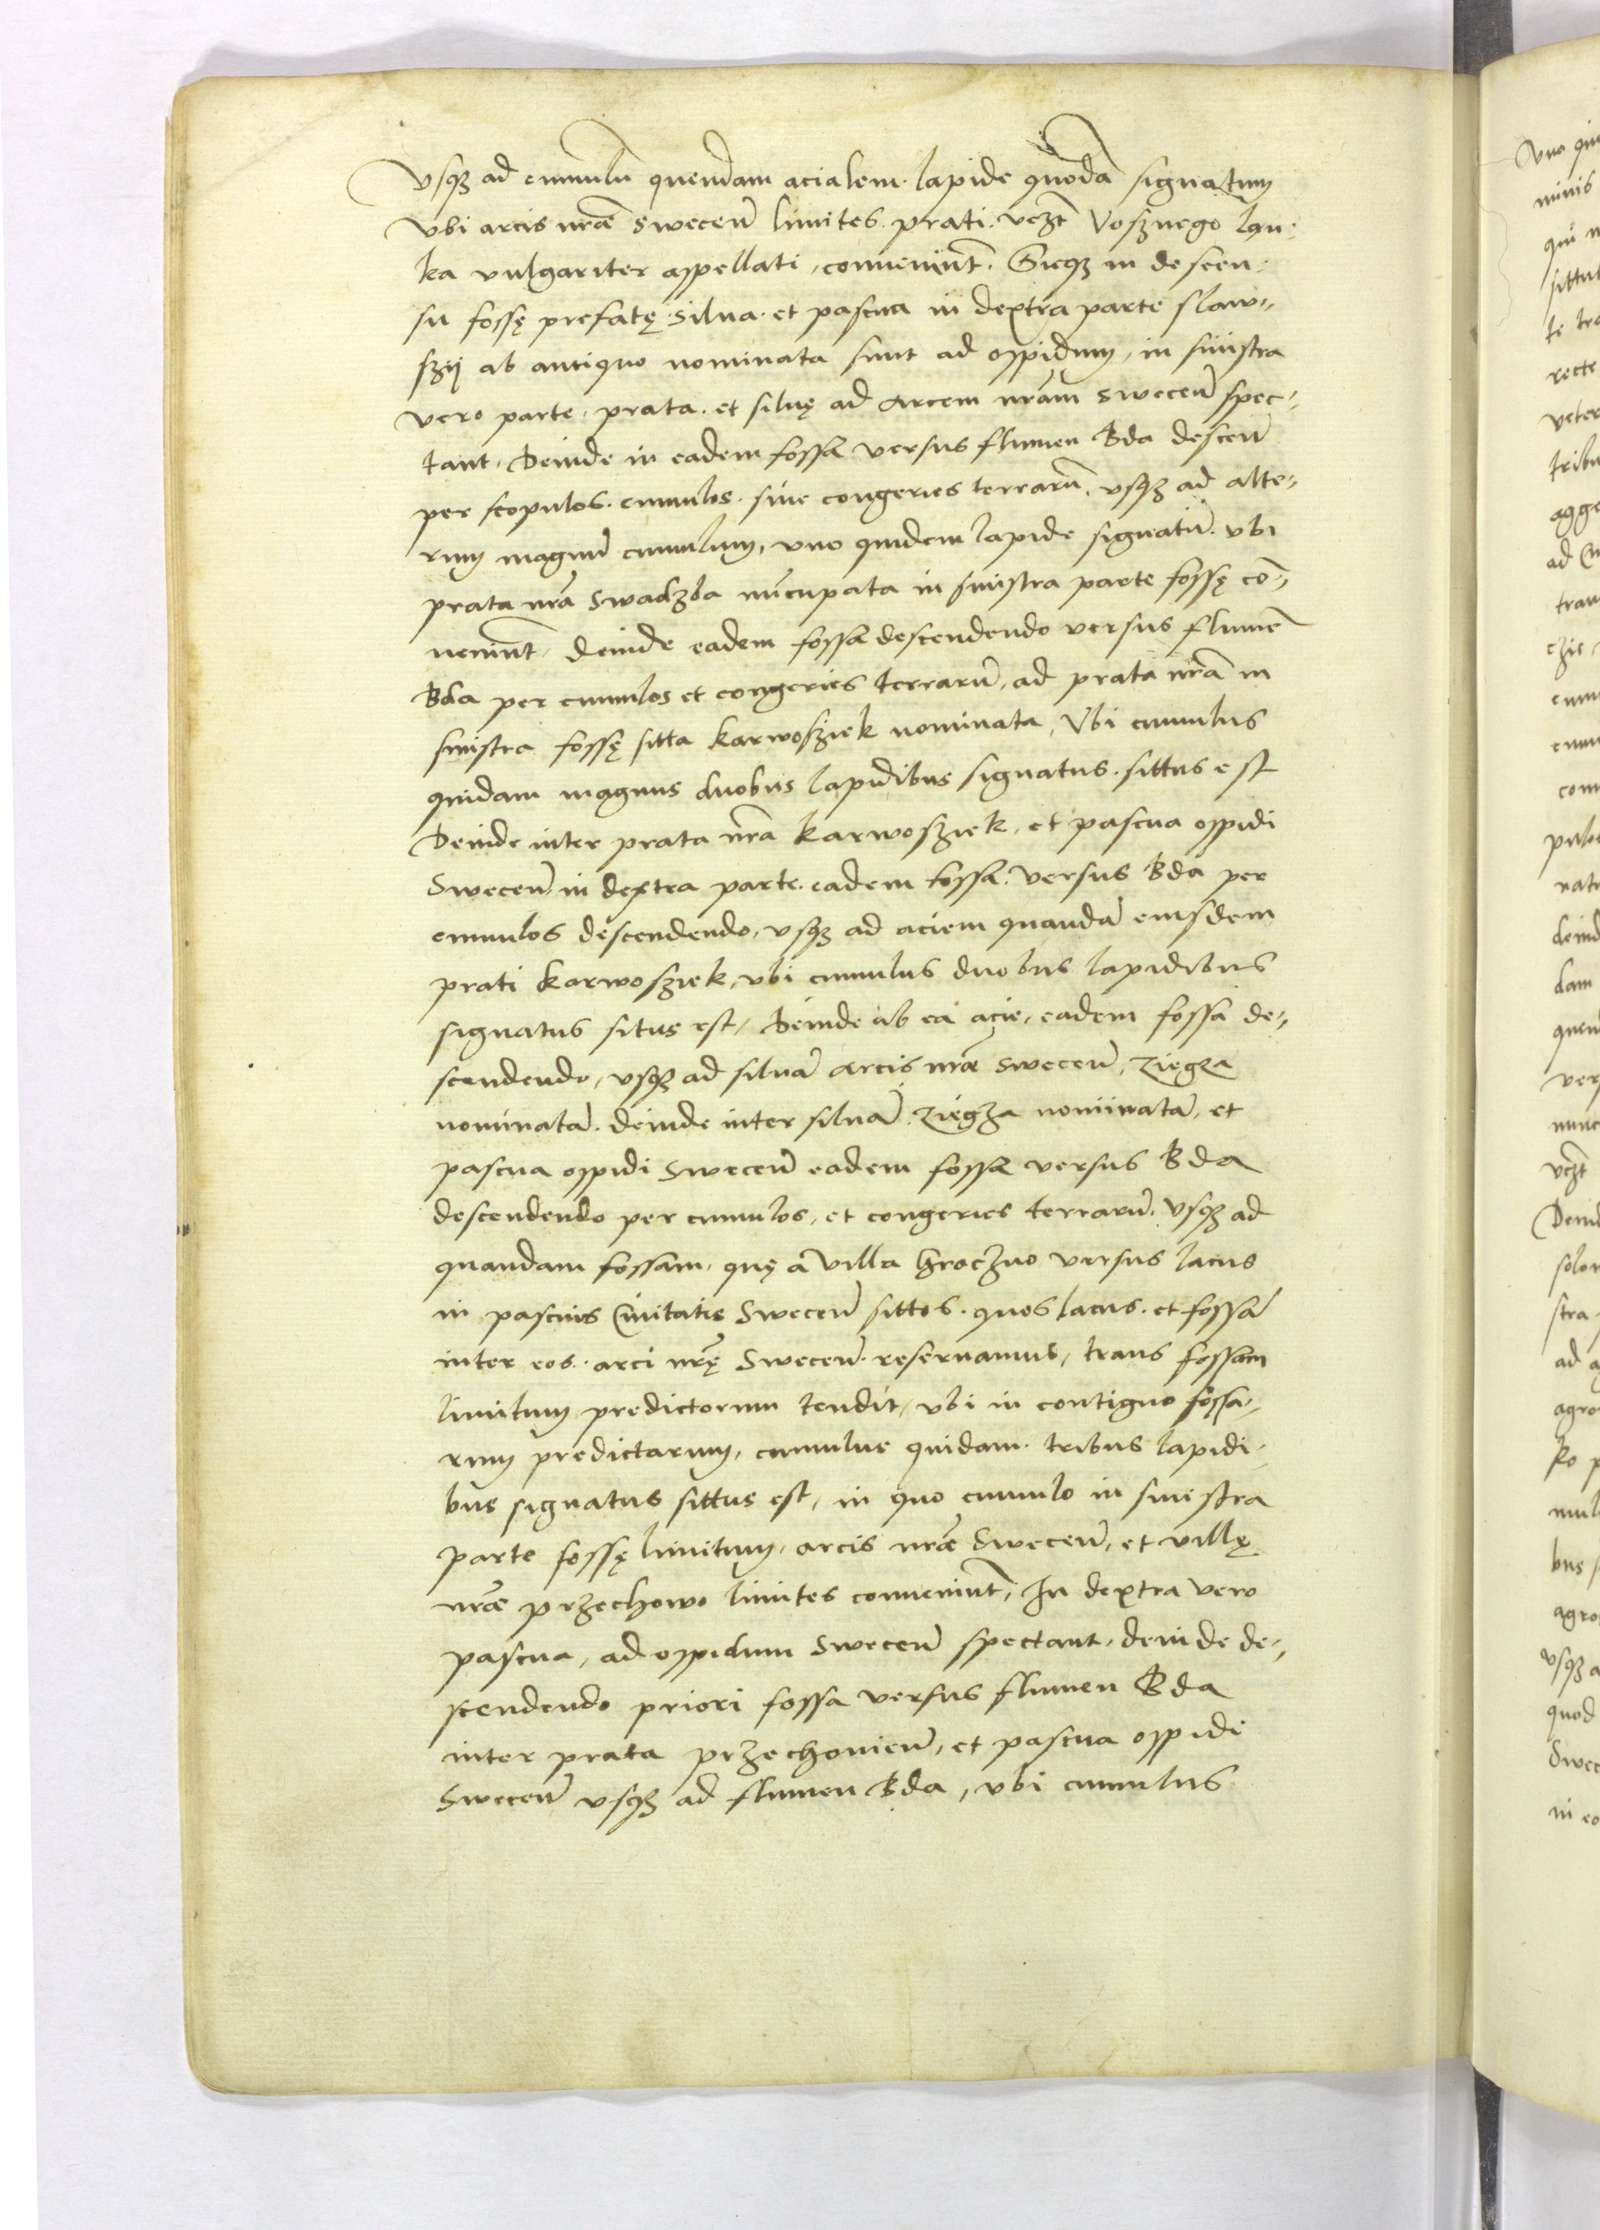 Vsq3 ad cumulū quendam acialem lapide quodā signatum
vbi arcis nrae Swecen̄ limites prati vcꝫt Voszнego lan-
ka vulgariter appellati, conueniūt. Sicq3 in descen-
su fossę prefatę silua et pascua in dextra parte slaw-
szij ab antiquo nominata sunt ad oppidum, in sinistra
vero parte, prata et siluę ad Arcem nrām Swecen̄ spec-
tant, Deinde in eadem fossa versus flumen Bda descen̄
per scopulos cumulos siue congeries terrarū, vsq3 ad alte-
rum magnū cumulum, vno quidem lapide signatū vbi
prata nrā Swadzba nūcupata in sinistra parte fossę cō-
ueniūt, deinde eadem fossa descendendo versus flumē
Bda per cumulos et congeries terrarū, ad prata nrā in
sinistra fossę sitta Karwosziek nominata, Vbi cumulus
quidam magnus duobus lapidibus signatus sittus est
Deinde inter prata nrā Karwosziek, et pascua oppidi
Swecen̄ in dextra parte eadem fossa versus Bda per
cumulos descendendo, vsq3 ad aciem quandā eiusdem
prati Karwosziek, vbi cumulus duobus lapidibus
signatus situs est, Deinde ab ea acie, eadem fossa de-
scendendo, vsq3 ad siluā Arcis nrae Swecen̄, Ziegza
nominatā. deinde inter siluā Ziegza nominatā, et
pascua oppidi Swecen̄ eadem fossa versus Bda
descendendo per cumulos, et congeries terrarū, Vsq3 ad
quandam fossam, quę a villa Groczno versus lacus
in pascuis Ciuitatis Swecen̄ sittos, quos lacus et fossā
inter eos arci nrę Swecen̄ reseruamus, trans fossam
limitum predictorum tendit, vbi in contiguo fossa-
rum predictarum, cumulus quidam tribus lapidi-
bus signatus sittus est, in quo cumulo in sinistra
parte fossę limitum, arcis nrae Swecen̄, et villę
nrae Przechowo limites conueniūt, In dextra vero
pascua, ad oppidum Swecen̄ spectant, deinde de-
scendendo priori fossa versus flumen Bda
inter prata Przechouien̄, et pascua oppidi
Swecen̄ vsq3 ad flumen Bda, vbi cumulus